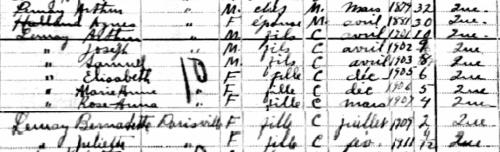 Lemay Arthur " M chef M mars 1879 32 Que
Hubbard Agnes " F épouse M avril 1881 30 Que
Lemay Arthur " M fils C avril 1901 10 Que
" Joseph " M fils C avril 1902 9 Que
" Samuel " M fils C avril 1903 8 Que
" Elisabeth " F fille C déc 1905 6 Que
" Marie Anne " F fille C déc 1906 5 Que
" Rose Anna " F fille C mars 1907 4 Que
Lemay Bernadette Parisville F fille C juillet 1909 2 Que
" Juliette " F fille C jan 1911 Que